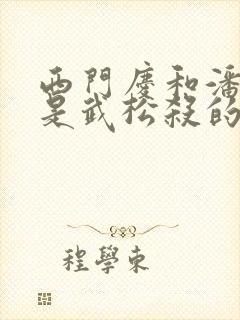 西門慶和潘
是武松殺的
程學東